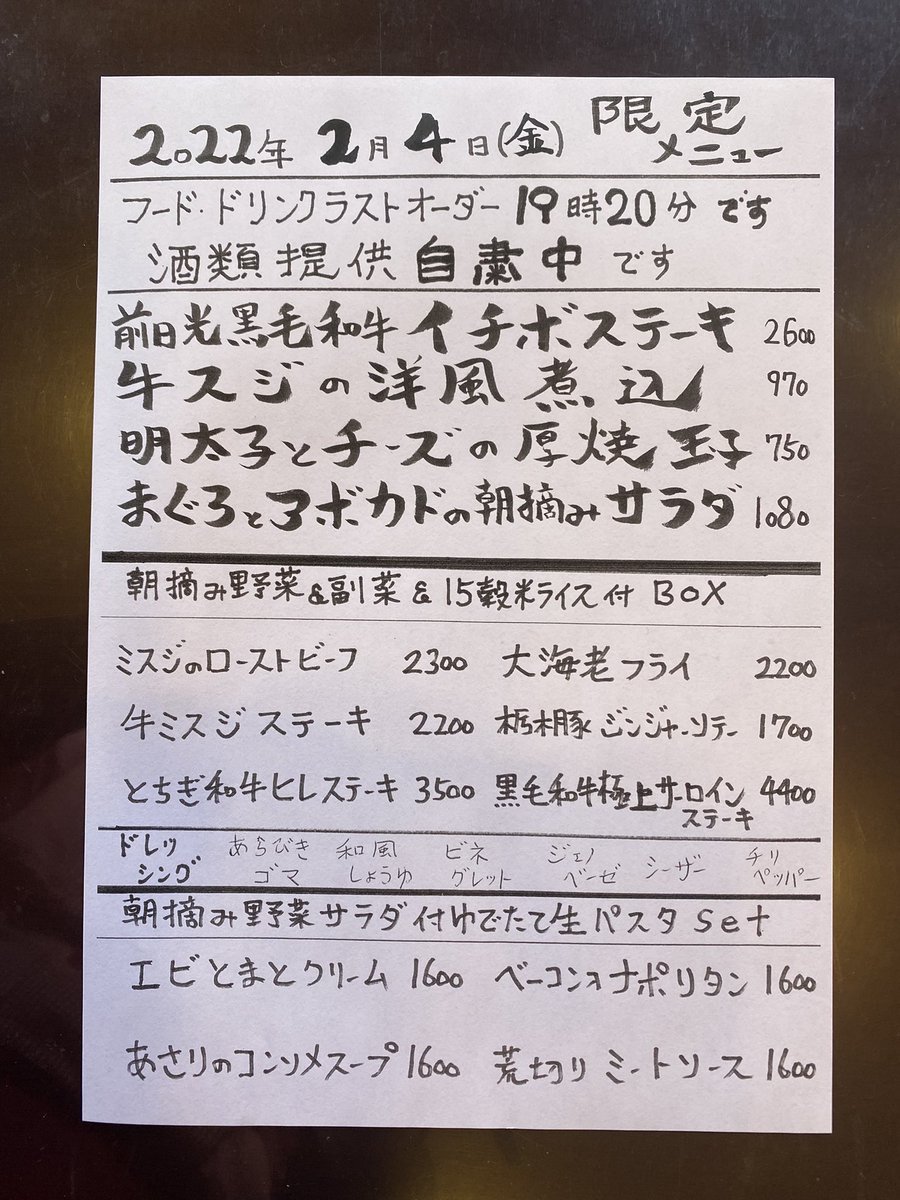 2022年 2月 4日(金) 限定メニュー
フード・ドリンクラストオーダー 19時20分 です
酒類提供 自粛中 です
前日光黒毛和牛イチボステーキ 2600
牛スジの洋風煮込 970
明太子とチーズの厚焼玉子 750
まぐろとアボカドの朝摘みサラダ 1080
朝摘み野菜&副菜&15穀米ライス付 BOX
ミスジのローストビーフ 2300 大海老フライ 2200
牛ミスジステーキ 2200 栃木豚ジンジャーソテー 1700
とちぎ和牛ヒレステーキ 3500 黒毛和牛極上サーロインステーキ 4400
ドレッシング あらびきゴマ 和風しょうゆ ビネグレット ジェノベーゼ シーザー チリペッパー
朝摘み野菜サラダ付ゆでたて生パスタ set
エビとまとクリーム 1600 ベーコンonナポリタン 1600
あさりのコンソメスープ 1600 荒切りミートソース 1600